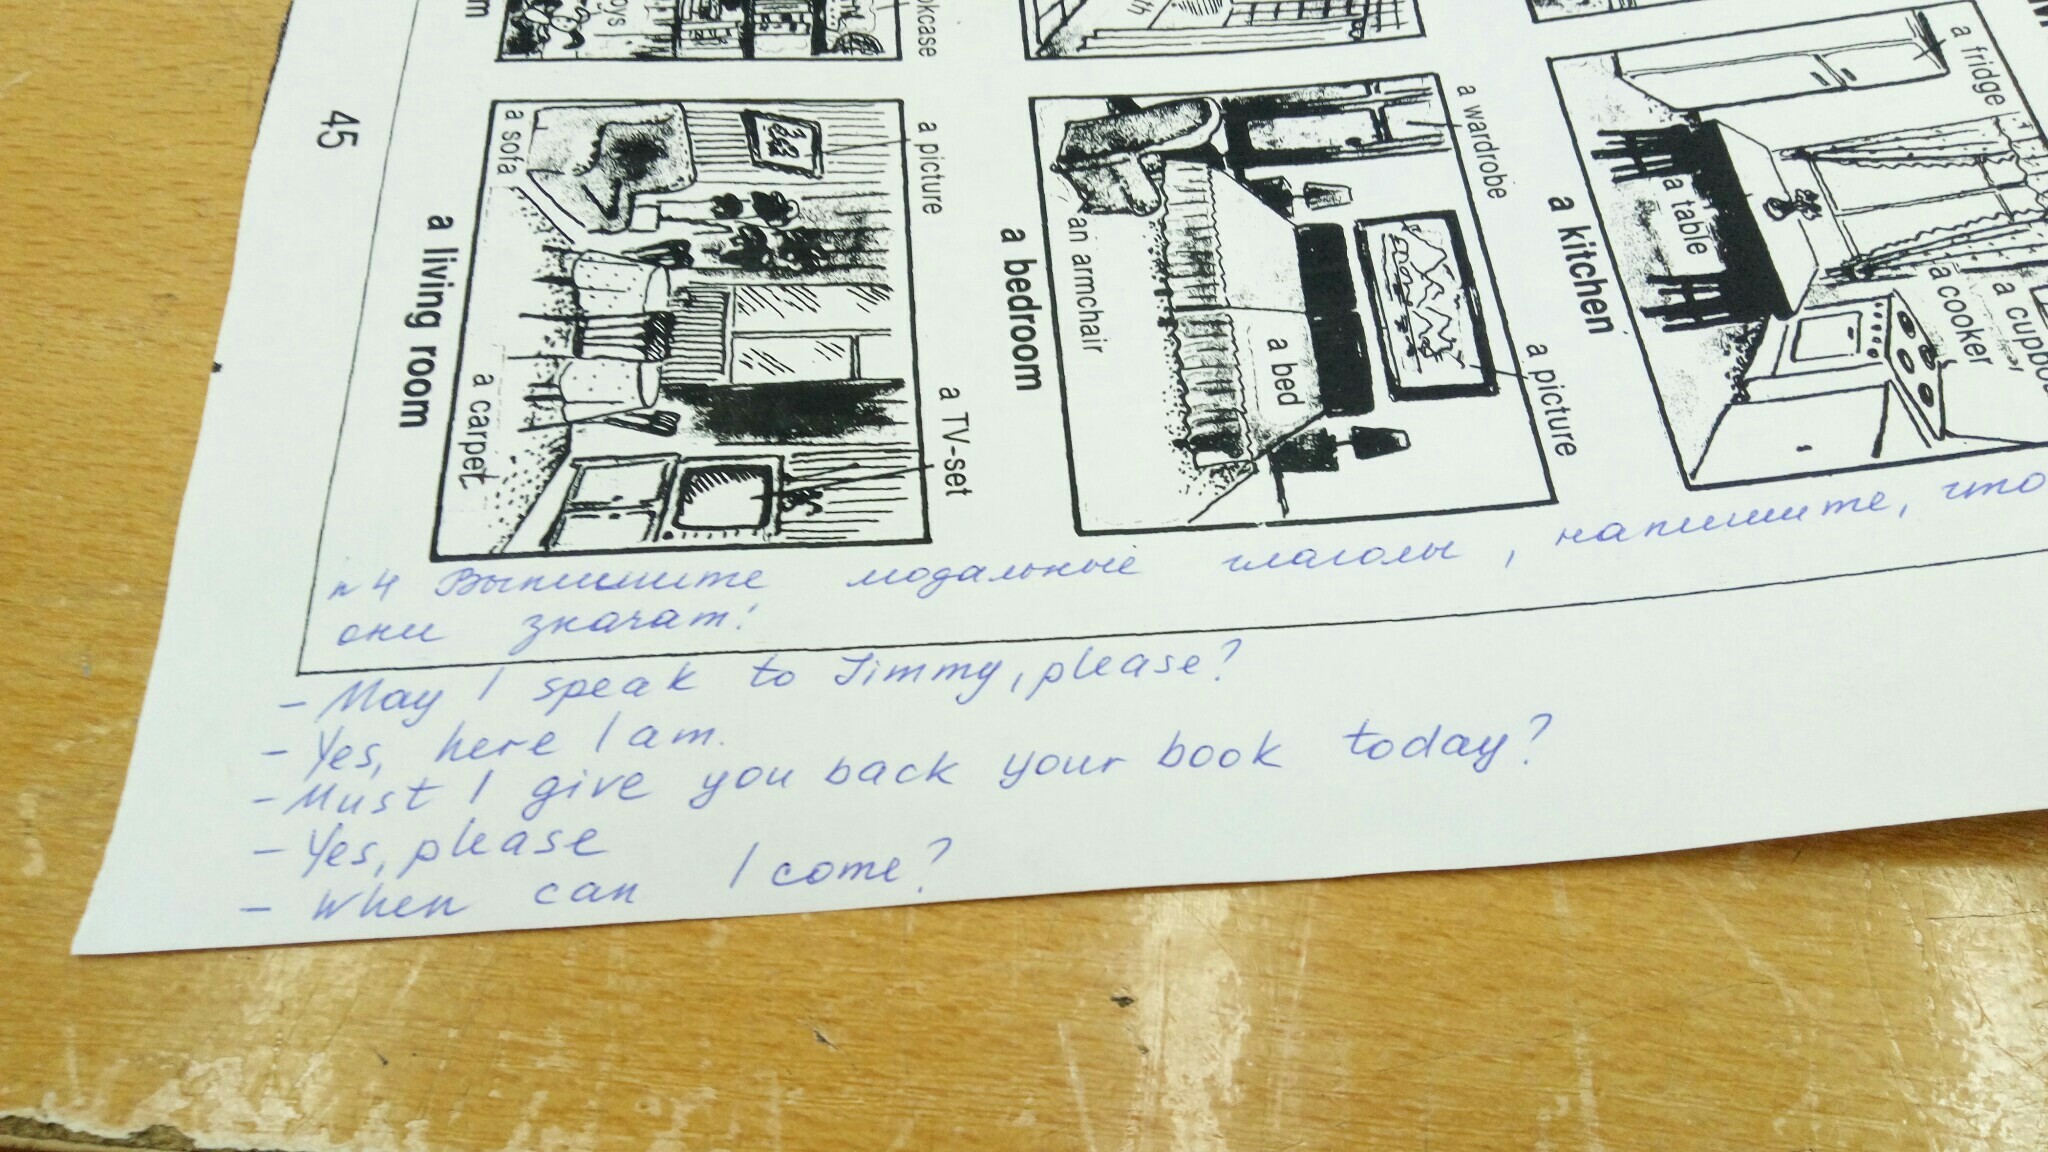 okcase
a fridge
a sofa
a picture
a living room
a carpet
a TV-set
a wardrobe
an armchair
a bed
a bedroom
a picture
a table
a cooker
a kitchen
45
n 4 Выпишите модальные глаголы, напишите, что
они значат:
- May I speak to Jimmy, please?
- Yes, here I am.
- Must I give you back your book today?
- Yes, please
- When can I come?